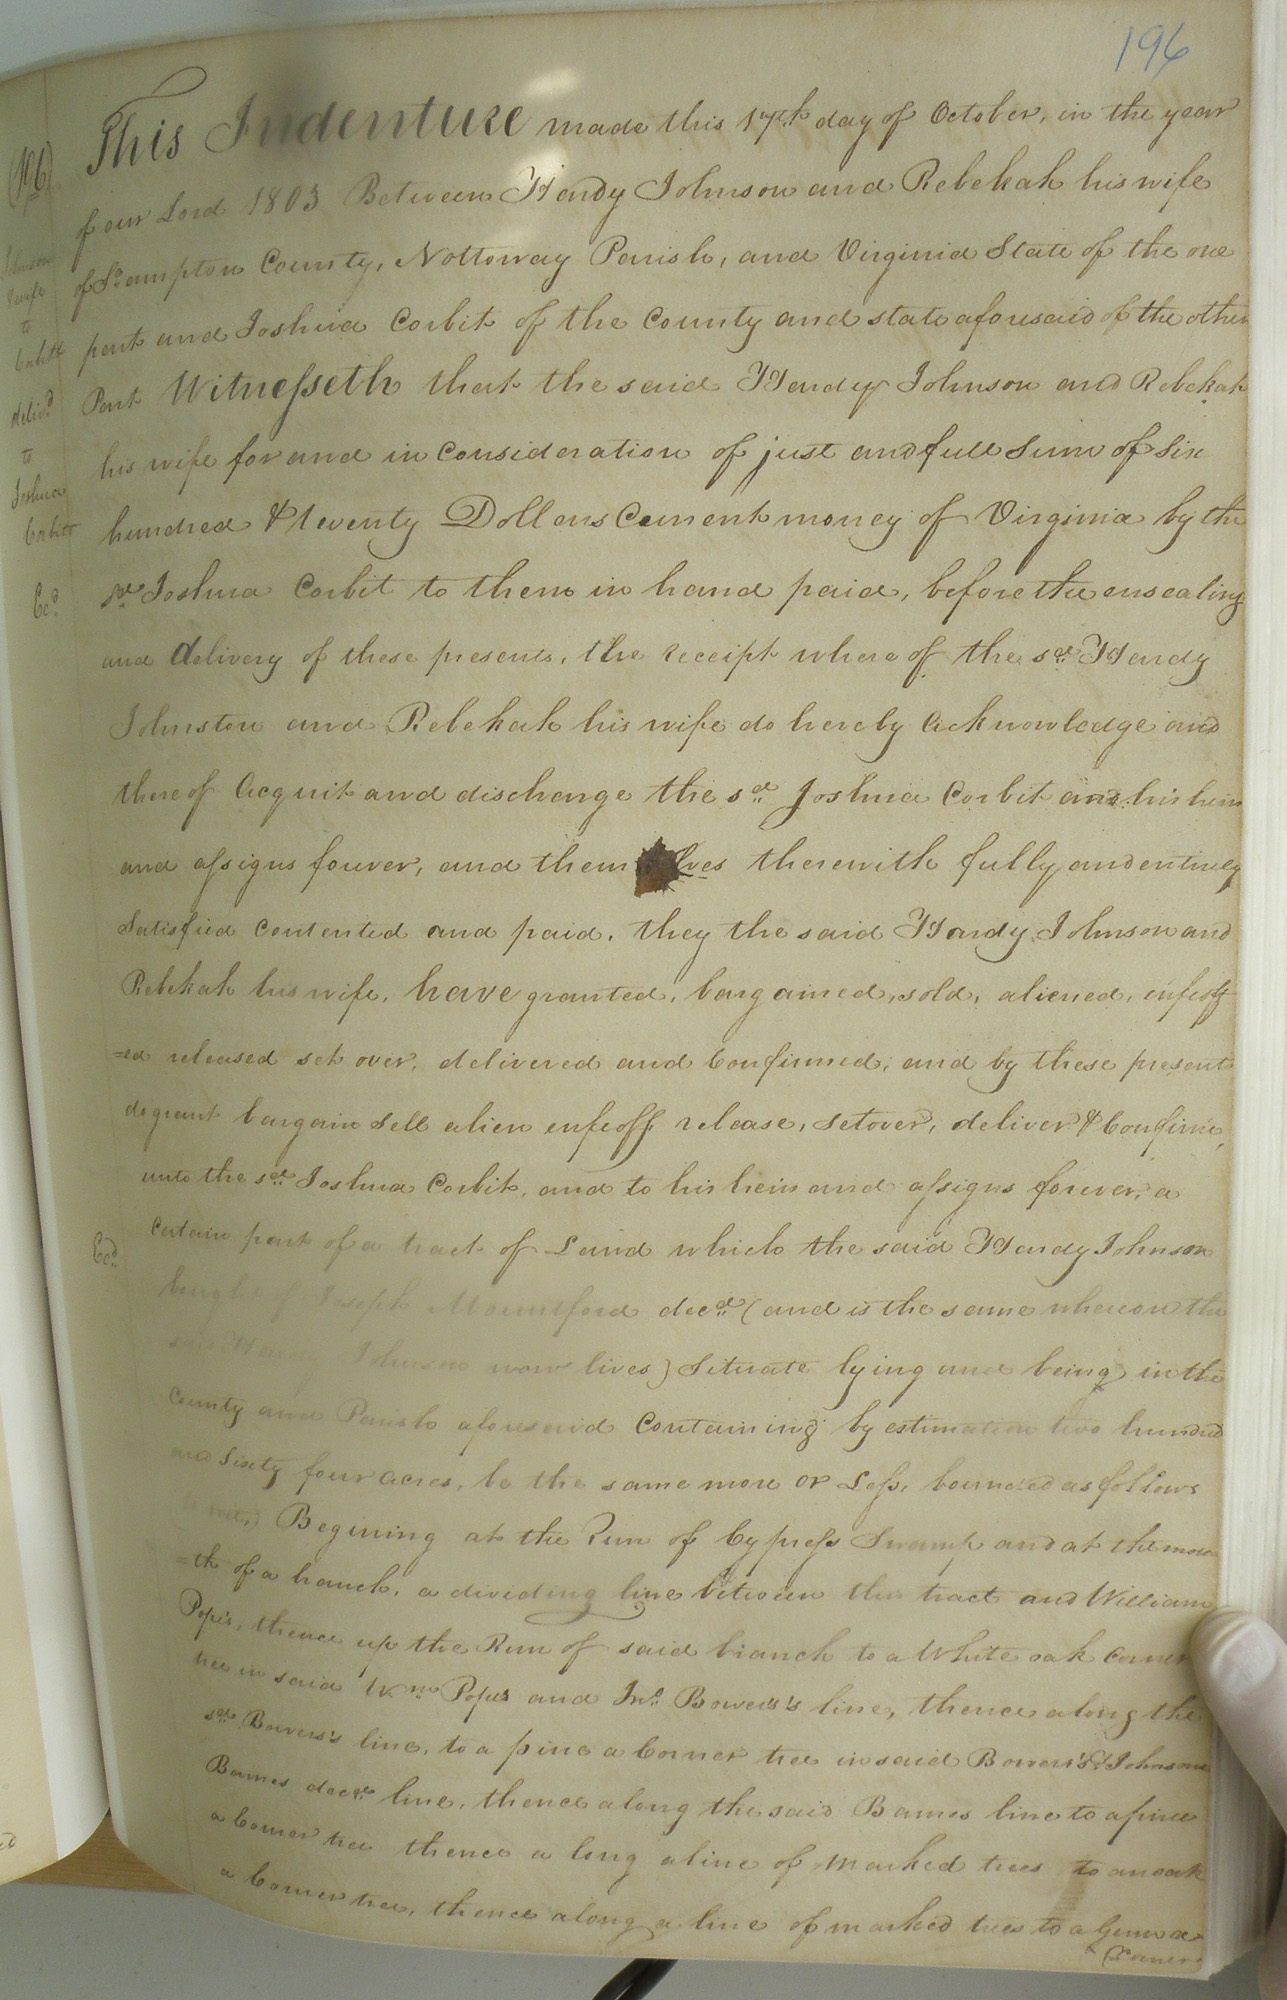 196
This Indenture made this 17th day of October, in the year
of our Lord 1803 Between Hardy Johnson and Rebekah his wife
of So.ampton County, Nottoway Parish, and Virginia State of the one
part and Joshua Corbit of the County and state aforesaid of the other
Part Witnesseth that the said Hardy Johnson and Rebekah
his wife for and in Consideration of just and full Sum of Six
hundred & twenty Dollars Current money of Virginia by the
sd. Joshua Corbit to them in hand paid, before the ensealing
and delivery of these presents, the receipt where of the sd. Hardy
Johnston and Rebekah his wife do hereby Acknowledge and
there of Acquit and discharge the sd. Joshua Corbit and his heirs
and assigns forever, and themselves therewith fully and entirely
Satisfied Contented and paid, they the said Hardy Johnson and
Rebekah his wife, have granted, bargained, sold, aliened, enfeoff
=ed released set over, delivered and Confirmed, and by these presents
do grant bargain Sell alien enfeoff release, Setover, deliver & Confirm,
unto the sd. Joshua Corbit, and to his heirs and assigns forever, a
Certain part of a tract of Land which the said Hardy Johnson
bought of Joseph Mountford decd. (and is the same whereon the
said Hardy Johnson now lives) Situate lying and being in the
County and Parish aforesaid Containing by estimation two hundred
and Sixty four acres, be the same more or Less, bounded as follows
Begining at the Run of Cypress Swamp and at the mou
=th of a branch, a dividing line between this tract and William
Pope's, thence up the Run of said branch to a White oak Corner
tree in said Wm. Popes and Jno. Bowers's line, thence along the
sd. Bowers's line, to a pine a Corner tree in said Bowers's & Johnson
Barnes decd. line, thence along the said Barnes line to a pine
a Corner tree thence a long a line of marked trees to an oak
a Corner tree, thence along a line of marked trees to a Gum a
Corner
(No. 6)
Johnson
& wife
to
Corbitt
delivd.
to
Joshua
Corbitt
Ecd.
Ecd.